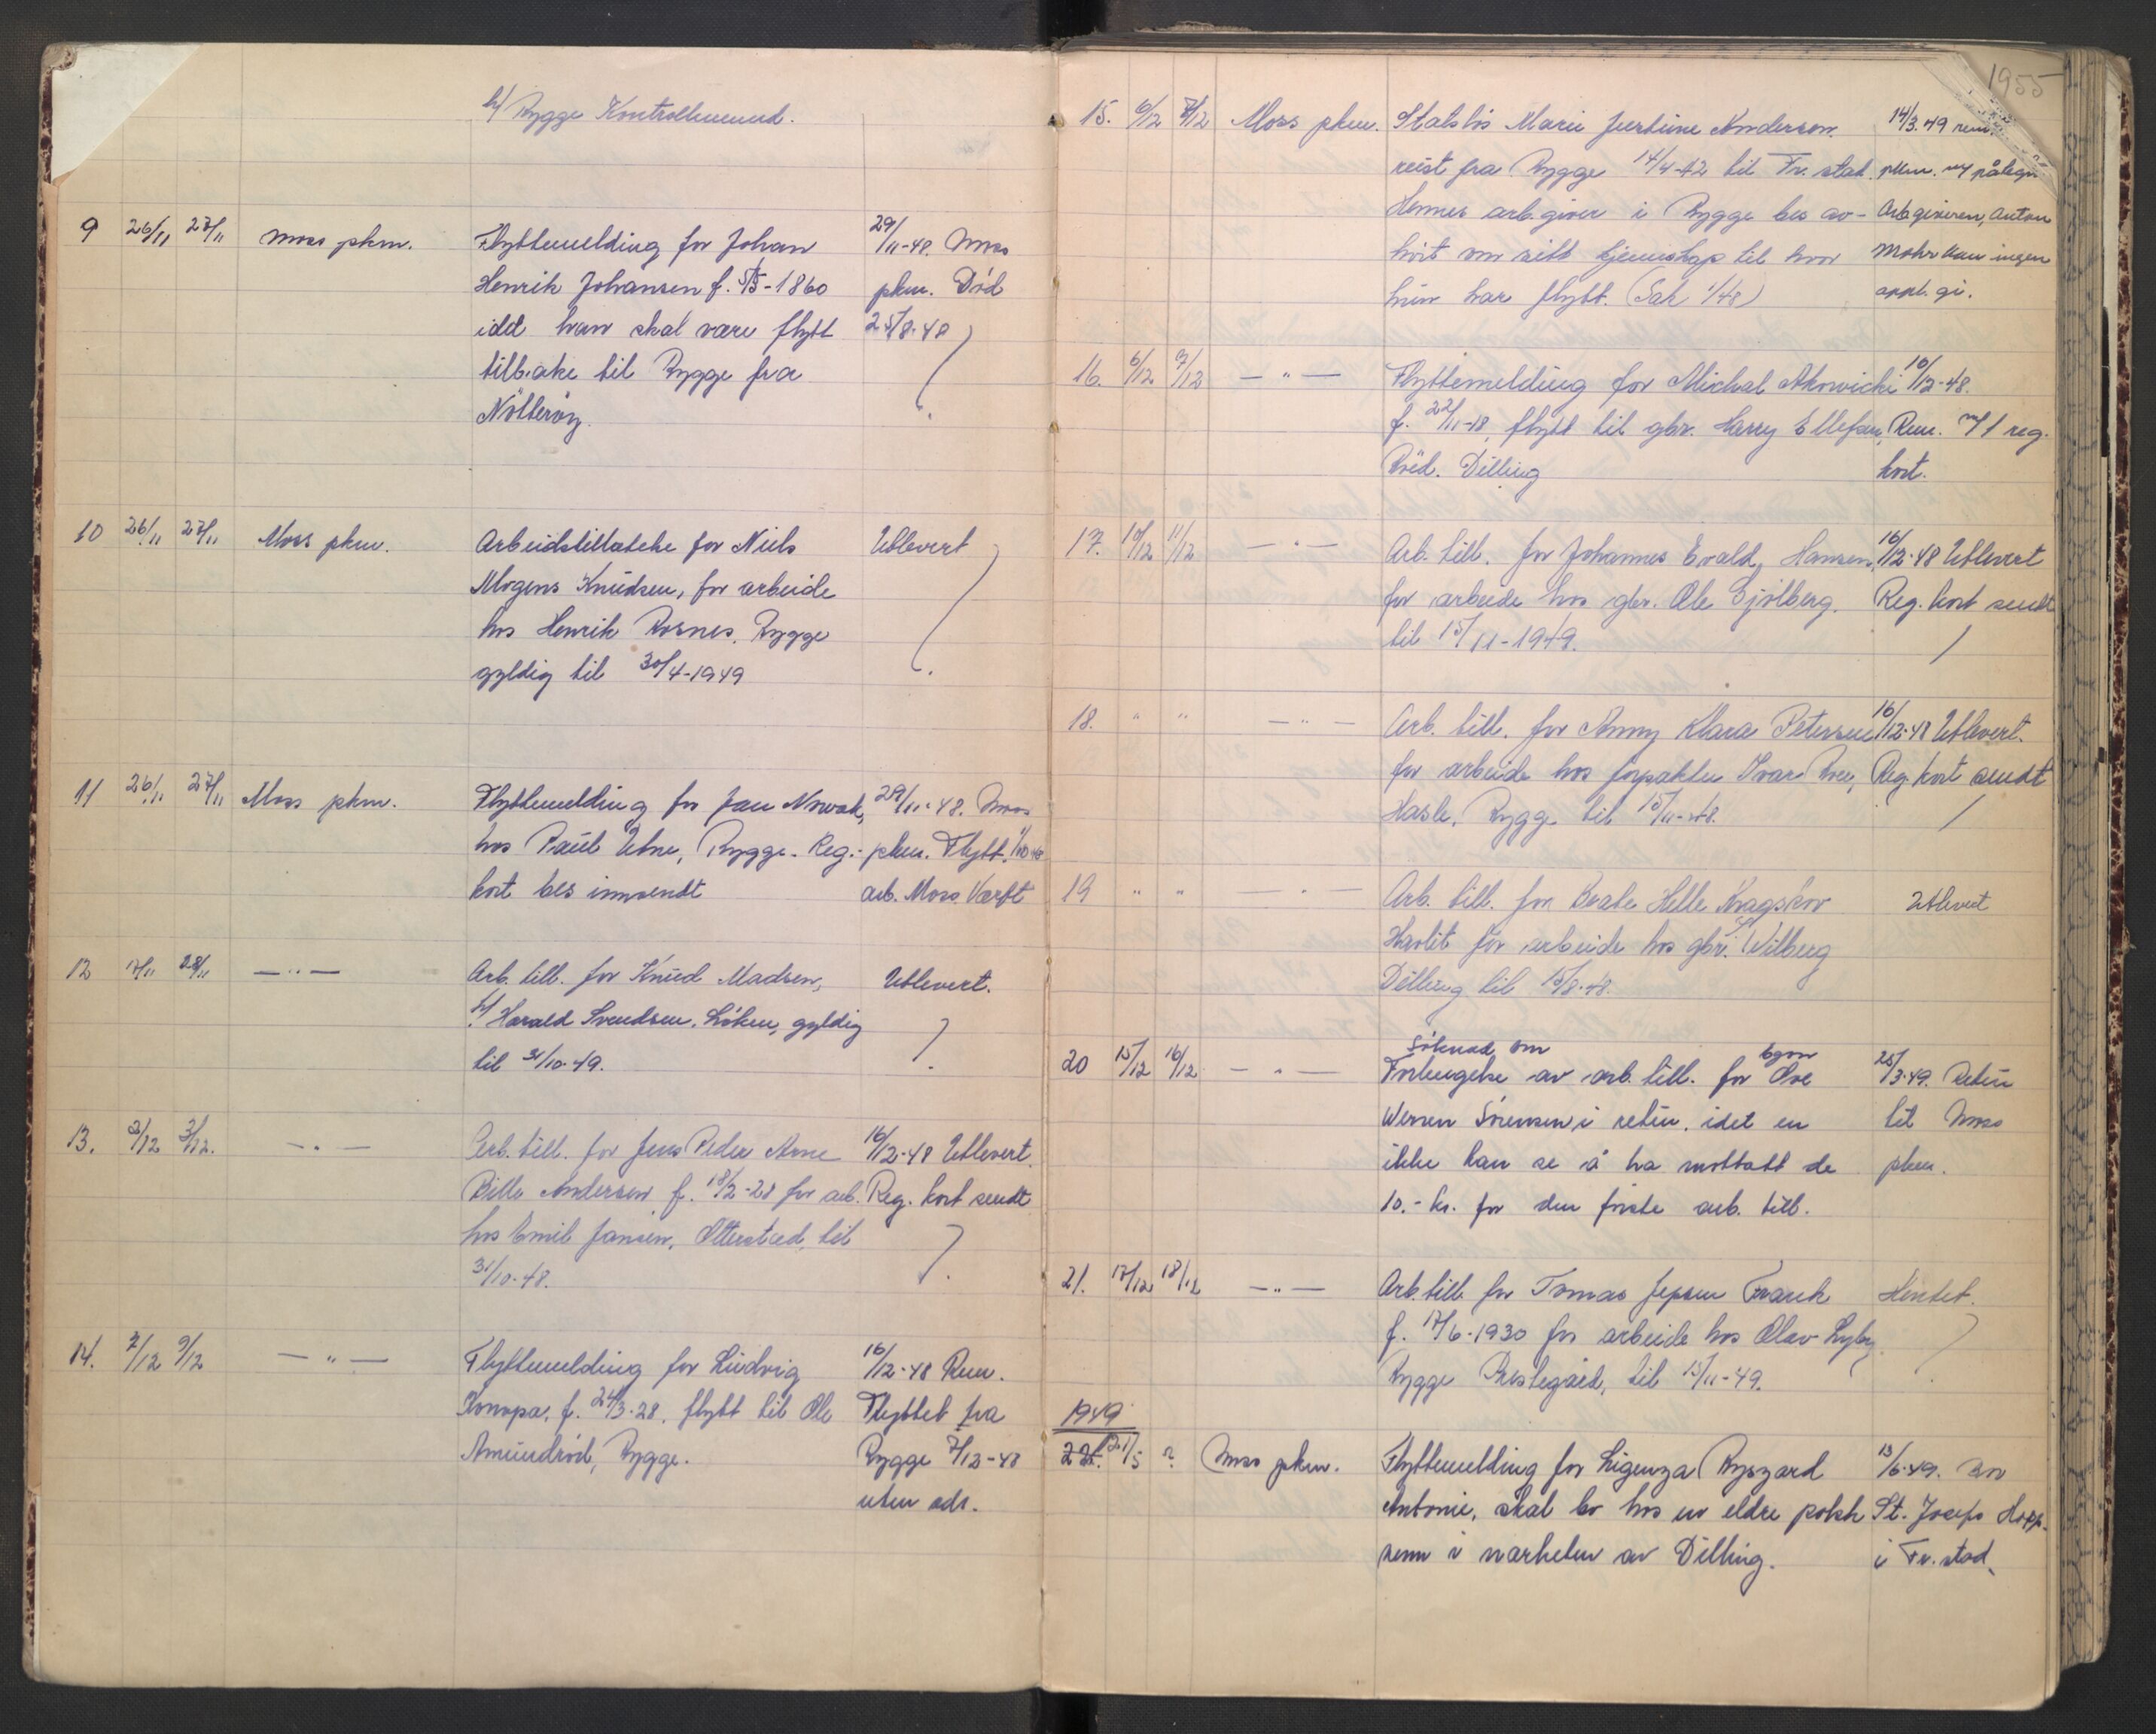 h/ Rygge Kontrollmannd.
9 26/11 27/11 Moss pkm. Flyttemelding for Johan 29/11-48. Moss
Henrik Johansen f. 5/5-1860 pkm. Död
idet han skal være flytt 25/8-48
tilbake til Rygge fra
Nötteröy.
10 26/11 27/11 Moss pkm. Arbeidstillatelse for Niels Utlevert
Mogens Knudsen, for arbeide
hos Henrik Rosnes, Rygge
gyldig til 30/4-1949
11 26/11 27/11 Moss pkm. Flyttemelding for Jan Nowak, 29/11-48. Moss
hos Paul Utne, Rygge. Reg.- pkm. Flytt.
kort bes innsendt arb. Moss Værft
12 28/11 — " — Arb. till. for Knud Madsen, Utlevert.
h/ Harald Svendsen, Löken, gyldig
til 31/10-49.
13. 2/12 3/12. — " — Arb. till. for Jens Peder Arne 16/12-48 Utlevert.
Bille Andersen f. 18/2-28 for arb. Reg. kort sendt
hos Emil Jansen, Otterstad, til
31/10-48.
14. 7/12 9/12 — " — Flyttemelding for Ludvig 16/12-48 Rem.
Konopa, f. 24/3-28, flytt til Ole Flyttet fra
Amundröd, Rygge. Rygge 7/12-48
uten adr.
1955
15. 6/12 7/12 Moss pkm. Statslös Marie Justine Andersen. 14/3.49 rem.
reist fra Rygge 14/4-42 til Fr.stad. pkm. m/ påtegn
Hennes arb.giver i Rygge bes av- Arbgiveren, Anton
hört om sitt kjennskap til hvor Mohr kan ingen
hun har flytt. (Sak 1/48) oppl. gi.
16. 6/12 7/12 — " — Flyttemelding for Michal 10/12-48.
f. 22/11-18, flytt til gbr. Harry Ellefsen, Rem. m/ 1 reg.
Röd. Dilling kort.
17. 10/12 11/12 — " — Arb. till. for Johannes Evald, Hansen, 16/12-48 Utlevert
for arbeide hos gbr. Ole Gjölberg. Reg. kort sendt
til 15/11-1949.
18. " " — " — Arb. till. for Anny Klara Petersen 16/12-48 Utlevert.
for arbeide hos forpakter Ivar Roer, Reg. kort sendt
Hasle, Rygge til 15/11-48.
19 " " — " — Arb. till. for Beate Helle Kragskov Utlevert
Havlit for arbeide hos gbr. Wilberg
Dilling til 15/8-48.
20 15/12 16/12 — " — Söknad om
Forlengelse av arb. till. for Egon Ove 25/3-49. Retur
Werren Sörensen i retur, idet en til Moss
ikke kan se å ha mottatt de pkm.
10.- kr. for den förste arb. till.
21. 17/12 18/12 — " — Arb. till for Tomas Jepsen Franck Hentet.
f. 17/6-1930 for arbeide hos Olav Lyby
Rygge Prestegård, til 15/11-49.
1949
22. ? Moss pkm. Flyttemelding for Ligenza Ryszard 13/6-49. Bor
Antonie, skal bo hos en eldre polsk St. Josefs Hosp.
venn i nærheten av Dilling. i Fr.stad.